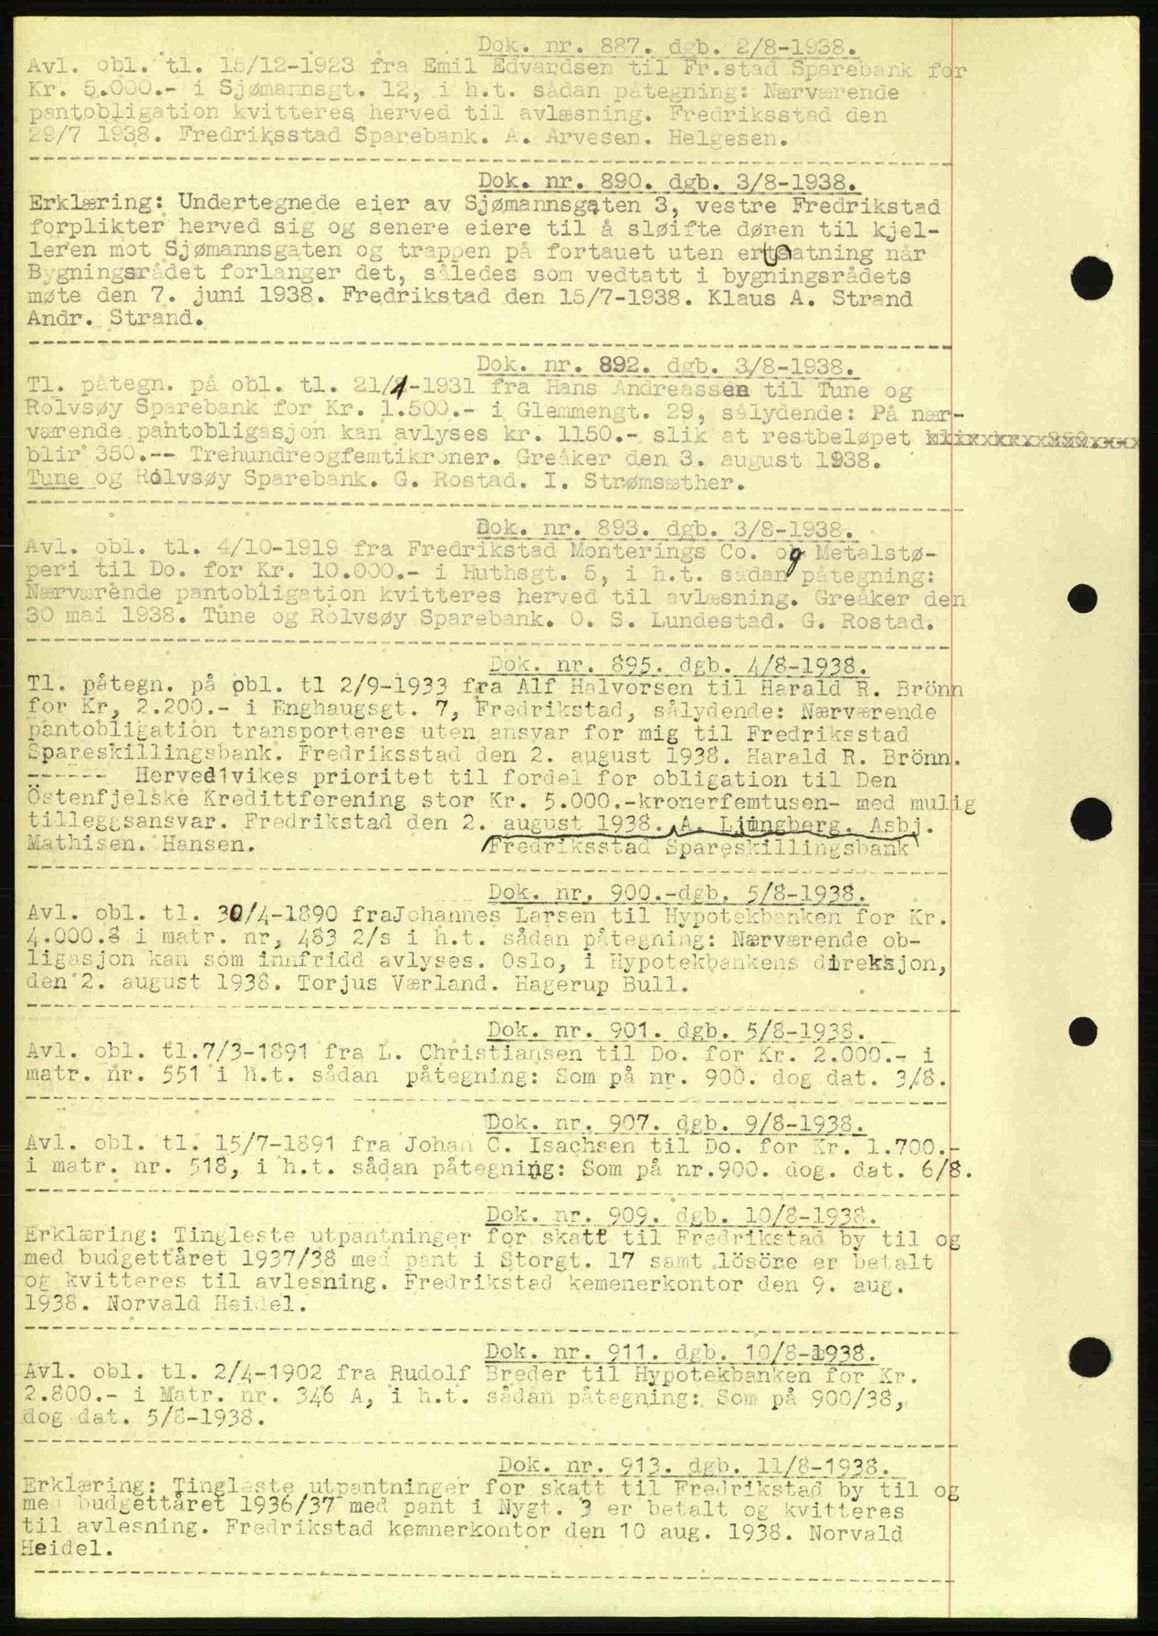 Dok. nr. 887. dgb. 2/8-1938.
Avl. obl. tl. 15/12-1923 fra Emil Edvardsen til Fr.stad Sparebank for
Kr. 5.000.- i Sjømannsgt. 12, i h.t. sådan påtegning: Nærværende
pantobligation kvitteres herved til avlæsning. Fredriksstad den
29/7 1938. Fredriksstad Sparebank. A. Arvesen. Helgesen.
Dok. nr. 890. dgb. 3/8-1938.
Erklæring: Undertegnede eier av Sjømannsgaten 3, vestre Fredrikstad
forplikter herved sig og senere eiere til å sløifte døren til kjel-
leren mot Sjømannsgaten og trappen på fortauet uten ertsatning når
Bygningsrådet forlanger det, således som vedtatt i bygningsrådets
møte den 7. juni 1938. Fredrikstad den 15/7-1938. Klaus A. Strand
Andr. Strand.
Dok. nr. 892. dgb. 3/8-1938.
Tl. påtegn. på obl. tl. 21/1-1931 fra Hans Andreassen til Tune og
Rolvsøy Sparebank for Kr. 1.500.- i Glemmengt. 29, sålydende: På nær-
værende pantobligasjon kan avlyses kr. 1150.- slik at restbeløpet
blir 350.-- Trehundreogfemtikroner. Greåker den 3. august 1938.
Tune og Rolvsøy Sparebank. G. Rostad. I. Strømsæther.
Dok. nr. 893. dgb. 3/8-1938.
Avl. obl. tl. 4/10-1919 fra Fredrikstad Monterings Co. og Metalstø-
peri til Do. for Kr. 10.000.- i Huthsgt. 5, i h.t. sådan påtegning:
Nærværende pantobligation kvitteres herved til avlæsning. Greåker den
30 mai 1938. Tune og Rolvsøy Sparebank. O. S. Lundestad. G. Rostad.
Dok. nr. 895. dgb. 4/8-1938.
Tl. påtegn. på obl. tl 2/9-1933 fra Alf Halvorsen til Harald R. Brönn
for Kr, 2.200.- i Enghaugsgt. 7, Fredrikstad, sålydende: Nærværende
pantobligation transporteres uten ansvar for mig til Fredriksstad
Spareskillingsbank. Fredriksstad den 2. august 1938. Harald R. Brönn.
------ Hervedlvikes prioritet til fordel for obligation til Den
Östenfjelske Kredittforening stor Kr. 5.000.-kronerfemtusen- med mulig
tilleggsansvar. Fredrikstad den 2. august 1938. A. Ljungberg. Asbj.
Mathisen. Hansen. Fredriksstad Spareskillingsbank
Dok. nr. 900.-dgb. 5/8-1938.
Avl. obl. tl. 30/4-1890 fraJohannes Larsen til Hypotekbanken for Kr.
4.000.8 i matr. nr, 483 2/s i h.t. sådan påtegning: Nærværende ob-
ligasjon kan som innfridd avlyses. Oslo, i Hypotekbankens direksjon,
den 2. august 1938. Torjus Værland. Hagerup Bull.
Dok. nr. 901. dgb. 5/8-1938.
Avl. obl. tl.7/3-1891 fra L. Christiansen til Do. for Kr. 2.000.- i
matr. nr. 551 i h.t. sådan påtegning: Som på nr. 900. dog dat. 3/8.
Dok. nr. 907. dgb. 9/8-1938.
Avl. obl. tl. 15/7-1891 fra Johan C. Isachsen til Do. for Kr. 1.700.-
i matr. nr. 518, i h.t. sådan påtegning: Som på nr.900. dog. dat. 6/8.
Dok. nr. 909. dgb. 10/8-1938.
Erklæring: Tingleste utpantninger for skatt til Fredrikstad by til og
med budgettåret 1937/38 med pant i Storgt. 17 samt lösöre er betalt
og kvitteres til avlesning. Fredrikstad kemenerkontor den 9. aug.
1938. Norvald Heidel.
Dok. nr. 911. dgb. 10/8-1938.
Avl. obl. tl. 2/4-1902 fra Rudolf Breder til Hypotekbanken for Kr.
2.800.- i Matr. nr. 346 A, i h.t. sådan påtegning: Som på 900/38,
dog dat. 5/8-1938.
Dok. nr. 913. dgb. 11/8-1938.
Erklæring: Tingleste utpantninger for skatt til Fredrikstad by til og
med budgettåret 1936/37 med pant i Nygt. 3 er betalt og kvitteres
til avlesning. Fredrikstad kemnerkontor den 10 aug. 1938. Norvald
Heidel.